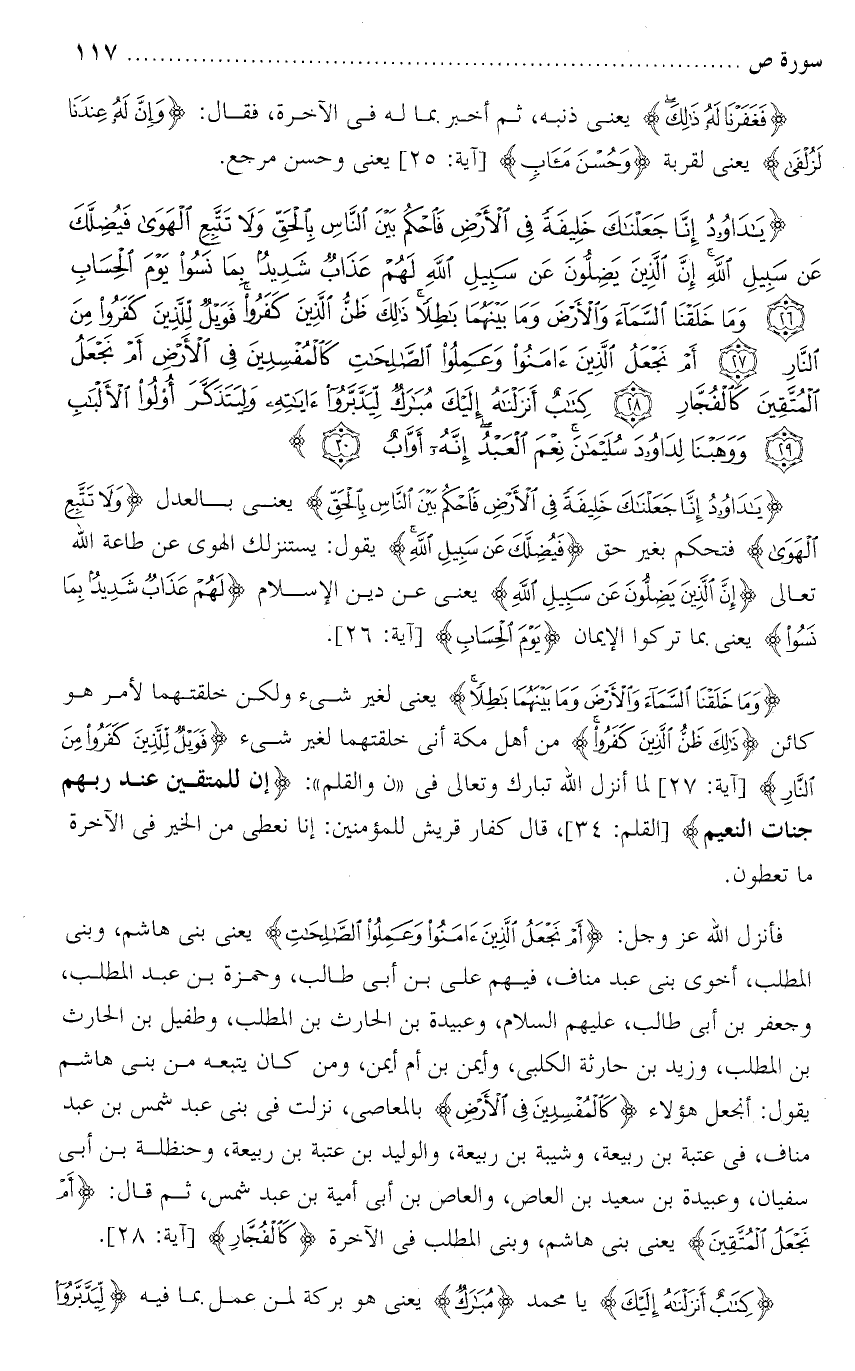 سورة ص ........................................................................ ١١٧
﴿فَغَفَرْنَا لَهُ ذَٰلِكَ ۖ﴾ يعنى ذنبه، ثم أخبر بما له فى الآخرة، فقال: ﴿وَإِنَّ لَهُ عِندَنَا
لَزُلْفَىٰ﴾ يعنى لقربة ﴿وَحُسْنَ مَـَٔابٍ﴾ [آية: ٢٥] يعنى وحسن مرجع.
﴿يَـٰدَاوُۥدُ إِنَّا جَعَلْنَـٰكَ خَلِيفَةً فِى ٱلْأَرْضِ فَٱحْكُم بَيْنَ ٱلنَّاسِ بِٱلْحَقِّ وَلَا تَتَّبِعِ ٱلْهَوَىٰ فَيُضِلَّكَ
عَن سَبِيلِ ٱللَّهِ ۚ إِنَّ ٱلَّذِينَ يَضِلُّونَ عَن سَبِيلِ ٱللَّهِ لَهُمْ عَذَابٌ شَدِيدٌۢ بِمَا نَسُوا۟ يَوْمَ ٱلْحِسَابِ
٢٦ وَمَا خَلَقْنَا ٱلسَّمَآءَ وَٱلْأَرْضَ وَمَا بَيْنَهُمَا بَـٰطِلًا ۚ ذَٰلِكَ ظَنُّ ٱلَّذِينَ كَفَرُوا۟ ۚ فَوَيْلٌ لِّلَّذِينَ كَفَرُوا۟ مِنَ
ٱلنَّارِ ٢٧ أَمْ نَجْعَلُ ٱلَّذِينَ ءَامَنُوا۟ وَعَمِلُوا۟ ٱلصَّـٰلِحَـٰتِ كَٱلْمُفْسِدِينَ فِى ٱلْأَرْضِ أَمْ نَجْعَلُ
ٱلْمُتَّقِينَ كَٱلْفُجَّارِ ٢٨ كِتَـٰبٌ أَنزَلْنَـٰهُ إِلَيْكَ مُبَـٰرَكٌ لِّيَدَّبَّرُوٓا۟ ءَايَـٰتِهِۦ وَلِيَتَذَكَّرَ أُو۟لُوا۟ ٱلْأَلْبَـٰبِ
٢٩ وَوَهَبْنَا لِدَاوُۥدَ سُلَيْمَـٰنَ ۚ نِعْمَ ٱلْعَبْدُ ۖ إِنَّهُۥٓ أَوَّابٌ ٣٠ ﴾
﴿يَـٰدَاوُۥدُ إِنَّا جَعَلْنَـٰكَ خَلِيفَةً فِى ٱلْأَرْضِ فَٱحْكُم بَيْنَ ٱلنَّاسِ بِٱلْحَقِّ﴾ يعنى بالعدل ﴿وَلَا تَتَّبِعِ
ٱلْهَوَىٰ﴾ فتحكم بغير حق ﴿فَيُضِلَّكَ عَن سَبِيلِ ٱللَّهِ ۚ﴾ يقول: يستنزلك الهوى عن طاعة الله
تعالى ﴿إِنَّ ٱلَّذِينَ يَضِلُّونَ عَن سَبِيلِ ٱللَّهِ﴾ يعنى عن دين الإسلام ﴿لَهُمْ عَذَابٌ شَدِيدٌۢ بِمَا
نَسُوا۟﴾ يعنى بما تركوا الإيمان ﴿يَوْمَ ٱلْحِسَابِ﴾ [آية: ٢٦].
﴿وَمَا خَلَقْنَا ٱلسَّمَآءَ وَٱلْأَرْضَ وَمَا بَيْنَهُمَا بَـٰطِلًا ۚ﴾ يعنى لغير شىء ولكن خلقتهما لأمر هو
كائن ﴿ذَٰلِكَ ظَنُّ ٱلَّذِينَ كَفَرُوا۟ ۚ﴾ من أهل مكة أنى خلقتهما لغير شىء ﴿فَوَيْلٌ لِّلَّذِينَ كَفَرُوا۟ مِنَ
ٱلنَّارِ﴾ [آية: ٢٧] لما أنزل الله تبارك وتعالى فى «ن والقلم»: ﴿إن للمتقين عند ربهم
جنات النعيم﴾ [القلم: ٣٤]، قال كفار قريش للمؤمنين: إنا نعطى من الخير فى الآخرة
ما تعطون.
فأنزل الله عز وجل: ﴿أَمْ نَجْعَلُ ٱلَّذِينَ ءَامَنُوا۟ وَعَمِلُوا۟ ٱلصَّـٰلِحَـٰتِ﴾ يعنى بنى هاشم، وبنى
المطلب، أخوى بنى عبد مناف، فيهم على بن أبى طالب، وحمزة بن عبد المطلب،
وجعفر بن أبى طالب، عليهم السلام، وعبيدة بن الحارث بن المطلب، وطفيل بن الحارث
بن المطلب، وزيد بن حارثة الكلبى، وأيمن بن أم أيمن، ومن كان يتبعه من بنى هاشم
يقول: أنجعل هؤلاء ﴿كَٱلْمُفْسِدِينَ فِى ٱلْأَرْضِ﴾ بالمعاصى، نزلت فى بنى عبد شمس بن عبد
مناف، فى عتبة بن ربيعة، وشيبة بن ربيعة، والوليد بن عتبة بن ربيعة، وحنظلة بن أبى
سفيان، وعبيدة بن سعيد بن العاص، والعاص بن أبى أمية بن عبد شمس، ثم قال: ﴿أَمْ
نَجْعَلُ ٱلْمُتَّقِينَ﴾ يعنى بنى هاشم، وبنى المطلب فى الآخرة ﴿كَٱلْفُجَّارِ﴾ [آية: ٢٨].
﴿كِتَـٰبٌ أَنزَلْنَـٰهُ إِلَيْكَ﴾ يا محمد ﴿مُبَـٰرَكٌ﴾ يعنى هو بركة لمن عمل بما فيه ﴿لِّيَدَّبَّرُوٓا۟